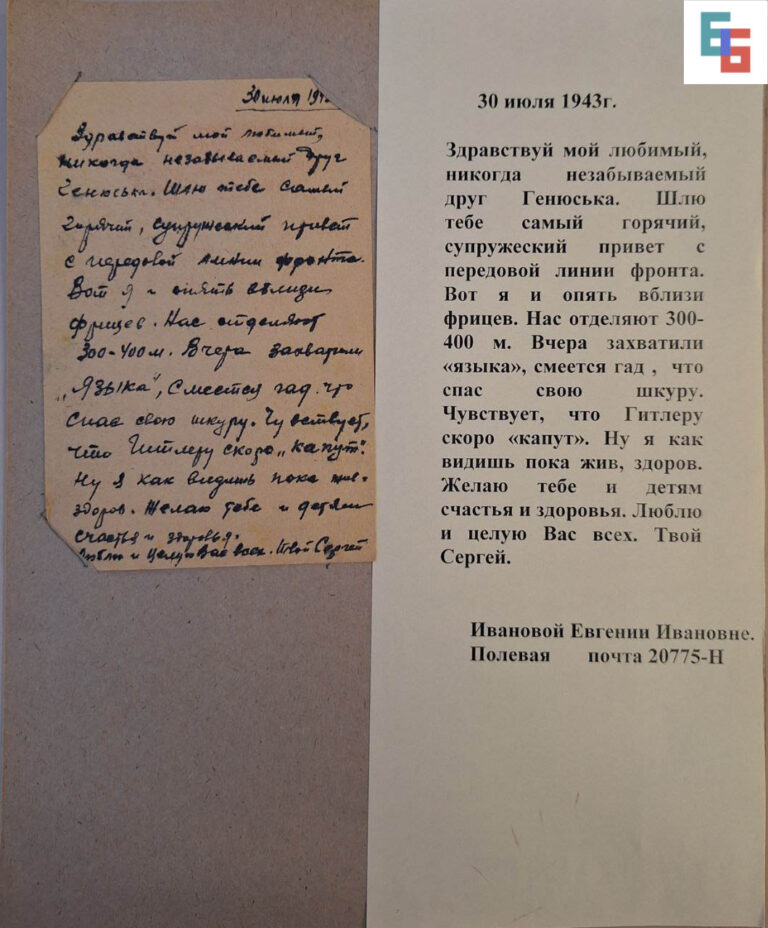 ЕБ
30 июля 194
Здравствуй мой любимый,
никогда незабываемый друг
Генюська. Шлю тебе самый
горячий, супружеский привет
с передовой линии фронта.
Вот я и опять вблизи
фрицев. Нас отделяют
300-400 м. Вчера захватили
„языка", смеется гад, что
спас свою шкуру. Чувствует,
что Гитлеру скоро „капут".
Ну я как видишь пока жив-
здоров. Желаю тебе и детям
счастья и здоровья.
Люблю и целую Вас всех. Твой Сергей
30 июля 1943г.
Здравствуй мой любимый,
никогда незабываемый
друг Генюська. Шлю
тебе самый горячий,
супружеский привет с
передовой линии фронта.
Вот я и опять вблизи
фрицев. Нас отделяют 300-
400 м. Вчера захватили
«языка», смеется гад , что
спас свою шкуру.
Чувствует, что Гитлеру
скоро «капут». Ну я как
видишь пока жив, здоров.
Желаю тебе и детям
счастья и здоровья. Люблю
и целую Вас всех. Твой
Сергей.
Ивановой Евгении Ивановне.
Полевая почта 20775-Н